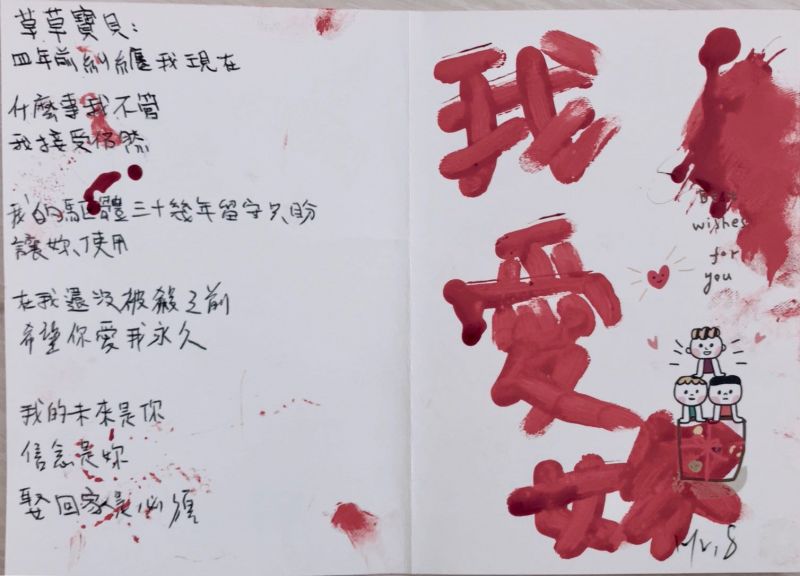 草草寶貝：
四年前糾纏我現在
什麼事我不管
我接受你條
我的軀體三十幾年留守只盼
讓妳使用
在我還沒被殺之前
希望你愛我永久
我的未來是你
信念是妳
娶回家是必須
我
愛
妳
Best
wishes
for
you
Mr.S